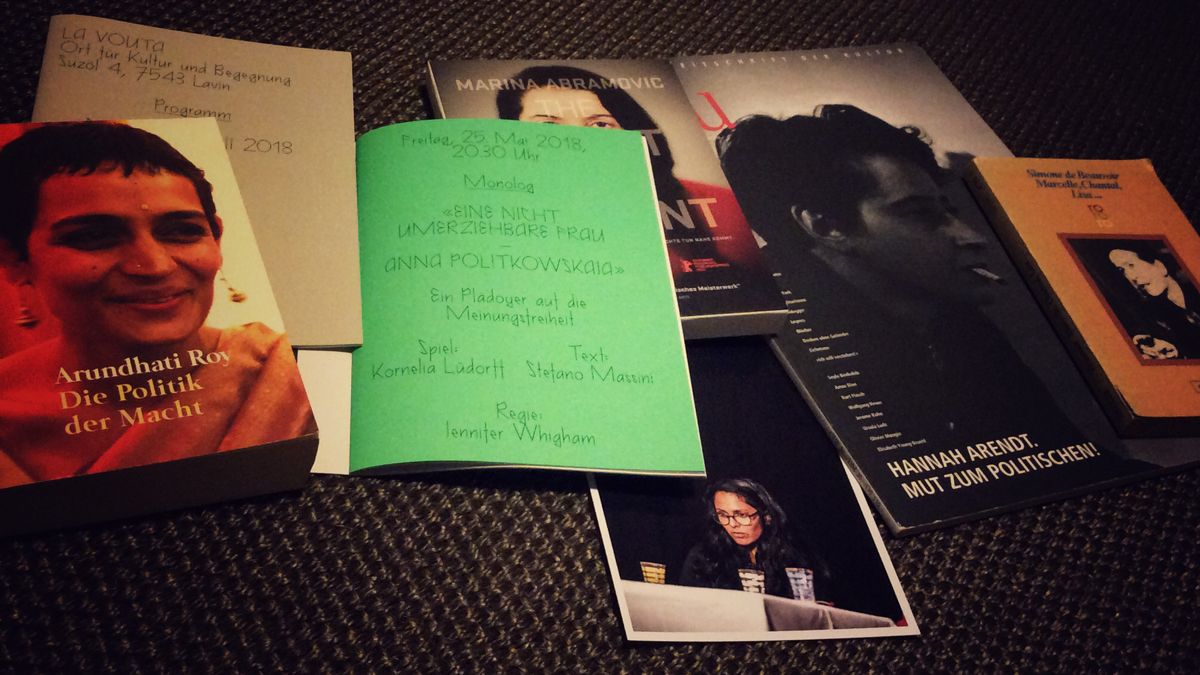 LA VOUTA
Ort für Kultur und Begegnung
Suzöl 4, 7543 Lavin
Programm
2018
Arundhati Roy
Die Politik
der Macht
Freitag, 25. Mai 2018,
20.30 Uhr
Monolog
«EINE NICHT
UMERZIEHBARE FRAU
–
ANNA POLITKOWSKAJA»
Ein Plädoyer auf die
Meinungsfreiheit
Spiel:
Kornelia Lüdorff
Text:
Stefano Massini
Regie:
Jennifer Whigham
MARINA ABRAMOVIC
THE
NT
Meisterwerk"
u
HANNAH ARENDT.
MUT ZUM POLITISCHEN!
Simone de Beauvoir
Marcelle, Chantal,
Lisa ...